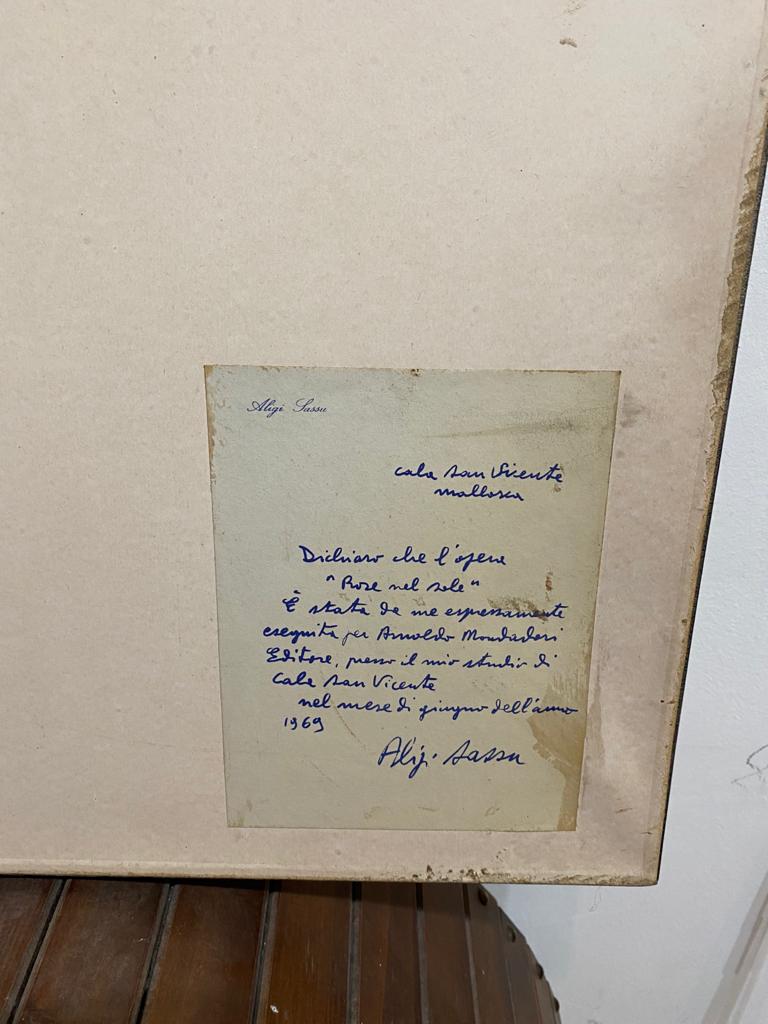 Aligi Sassu
Cala San Vicente
Mallorca
Dichiaro che l'opera
"Rose nel sole"
È stata da me espressamente
eseguita per Arnoldo Mondadori
Editore, presso il mio studio di
Cala San Vicente
nel mese di giugno dell'anno
1969
Aligi Sassu